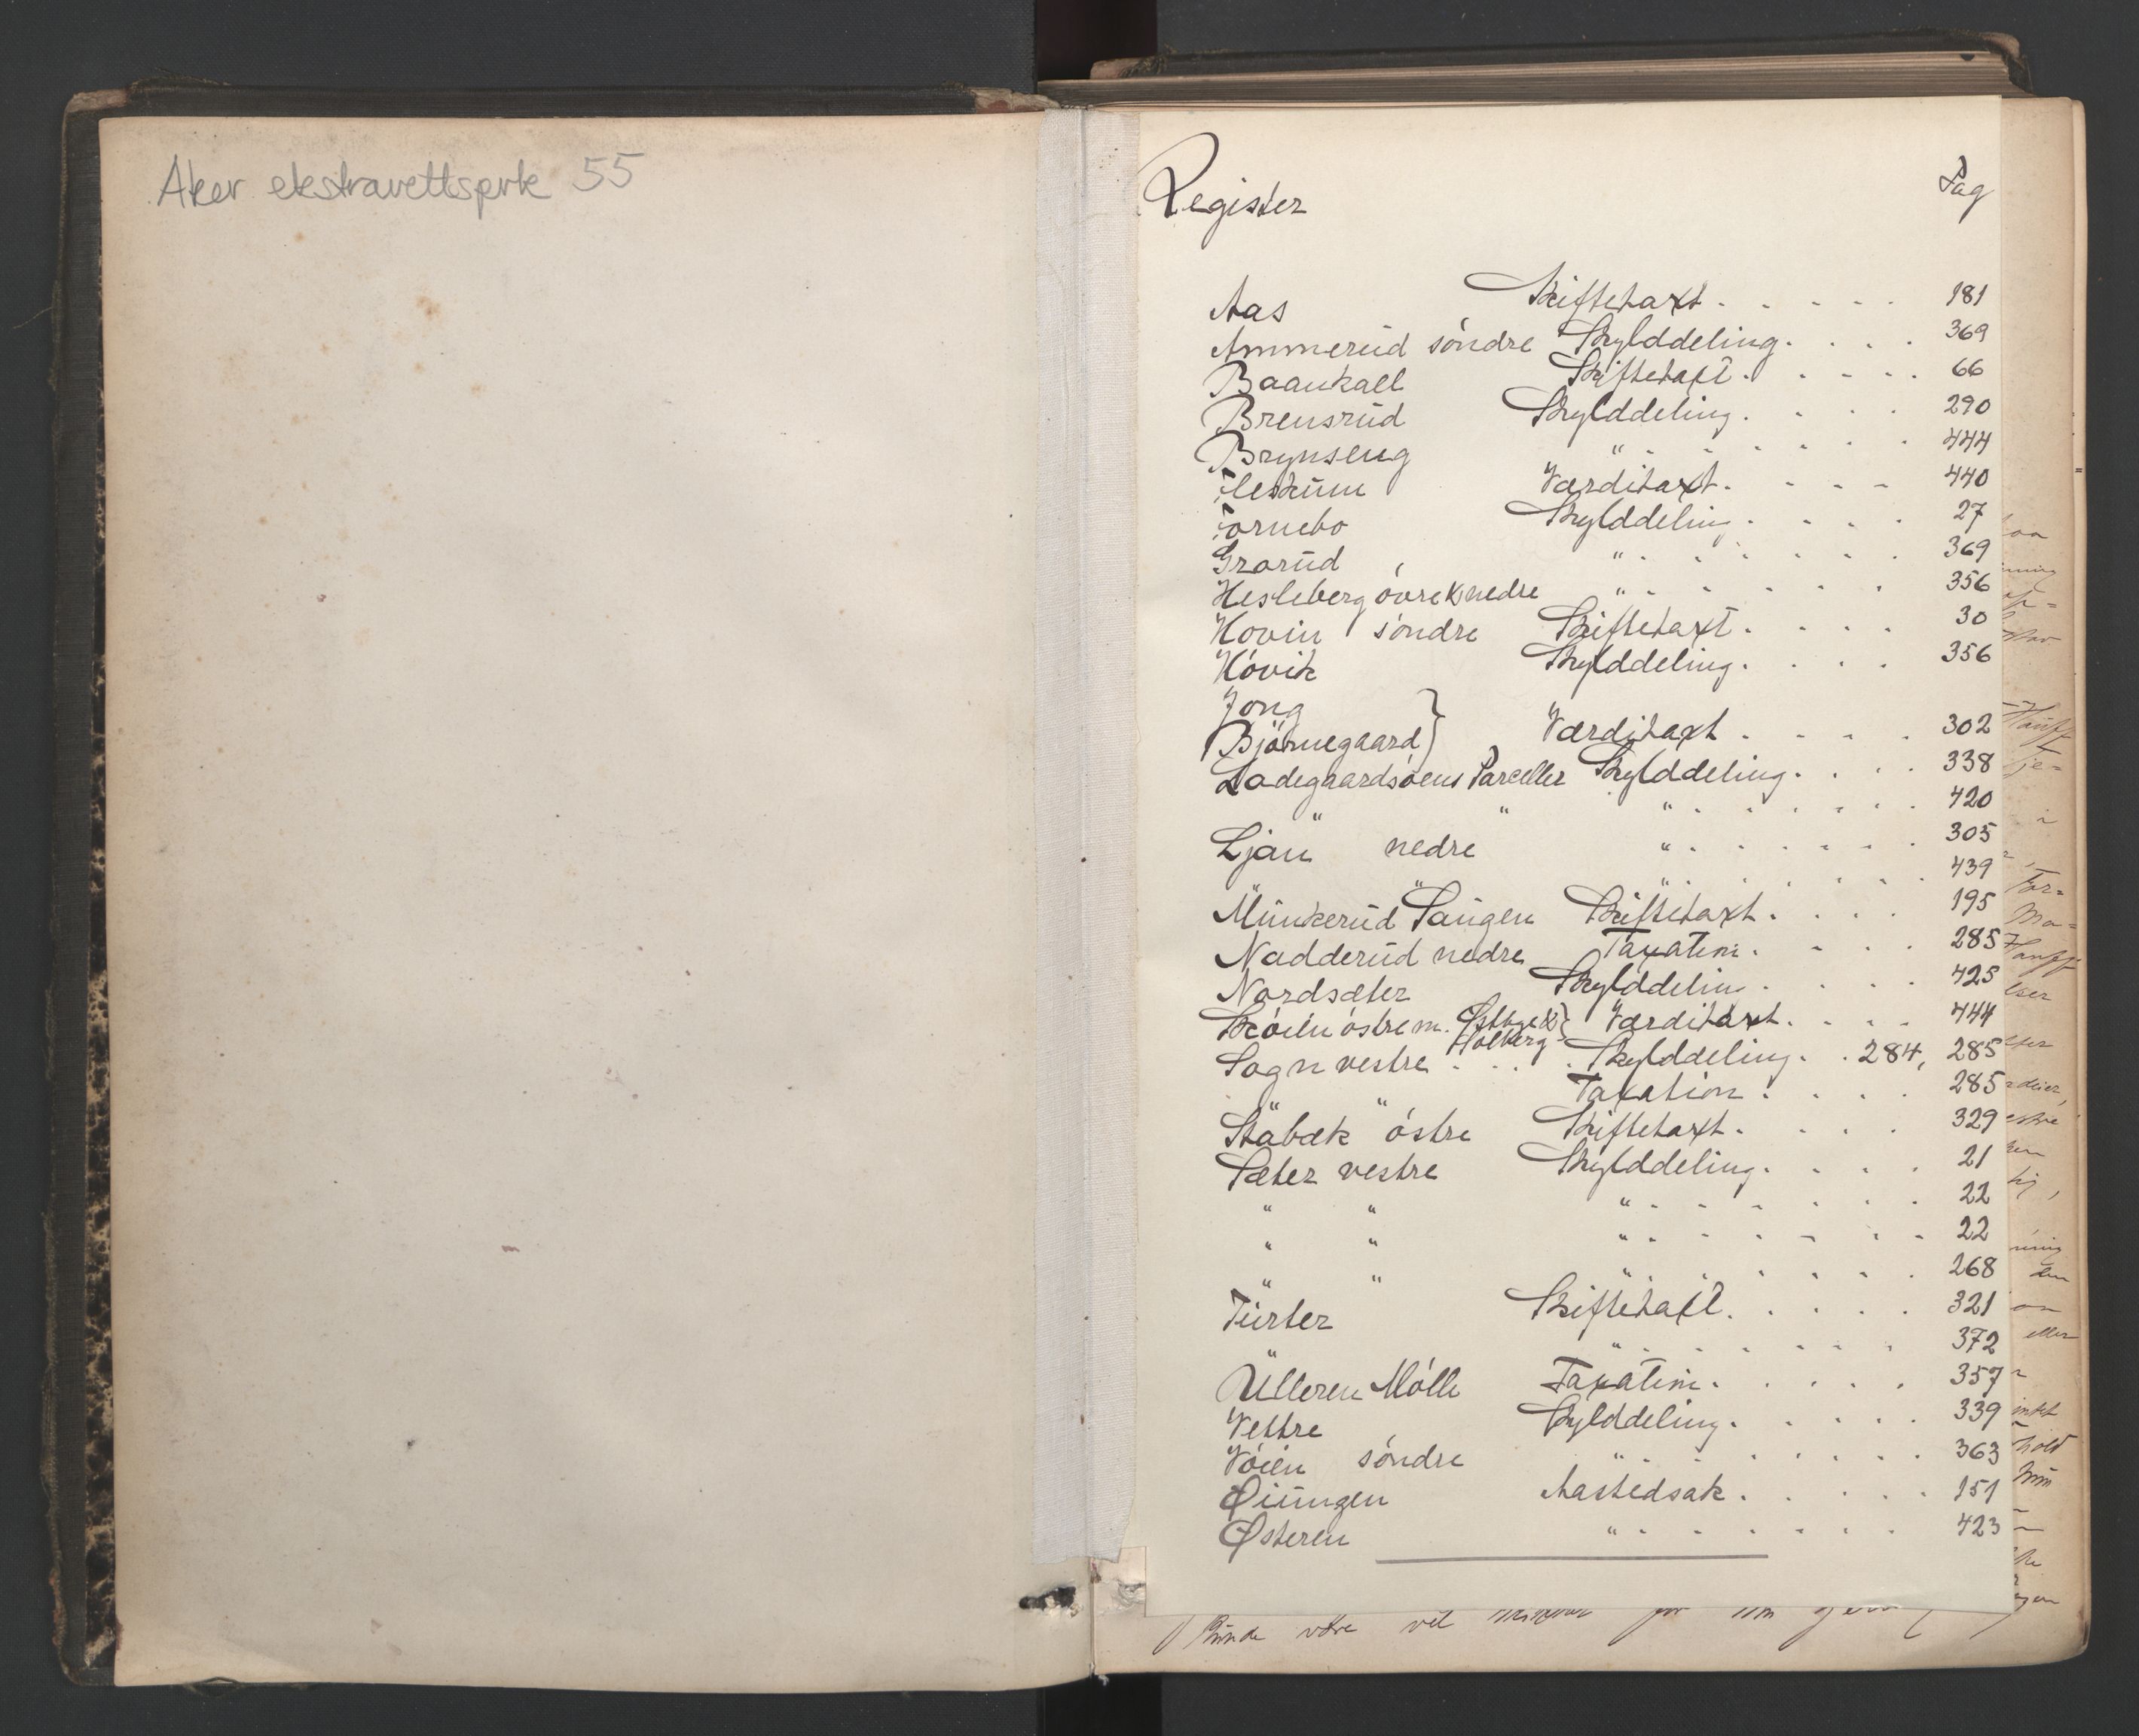 Aker ekstrarettsprk 55
Register Pag
Aas Skiftetaxt . . . . . 181
Ammerud söndre Skylddeling . . . . 369
Baankall Skiftetaxt . . . . . 66
Brensrud Skylddeling . . . . 290
Brynseng " . . . . . . 444
Fleskum Værditaxt . . . . 440
Fornebo Skylddeling . . . . 27
Grorud " . . . . . . 369
Hesleberg övre & nedre " . . . . . 356
Hovin söndre Skiftetaxt . . . . 30
Hövik Skylddeling . . . . 356
Jong }
Björnegaard } Værditaxt . . . . 302
Ladegaardsöens Parceller Skylddeling . . . . 338
" " " . . . . . . 420
Ljan nedre " . . . . . . 305
" " " . . . . . . 439
Munkerud Saugen Skiftetaxt . . . . 195
Nadderud nedre Taxation . . . . 285
Nordsæter Skylddeling . . . . 425
Sköien östre m. Östbye & } Værditaxt . . . . 444
Holberg
Sogn vestre . . . . Skylddeling . . 284, 285
" " Taxation . . . . 285
Stabæk östre Skiftetaxt . . . . 329
Sæter vestre Skylddeling . . . . 21
" " " . . . . . . 22
" " " . . . . . . 22
" " " . . . . . . 268
Turter Skiftetaxt . . . . . 321
" " . . . . . . 372
Ulleren Mölle Taxation . . . . . 357
Vettre Skylddeling . . . . . 339
Vöien söndre " . . . . . . 363
Øiungen Aastedsak . . . . . 151
Østeren " . . . . . . 423